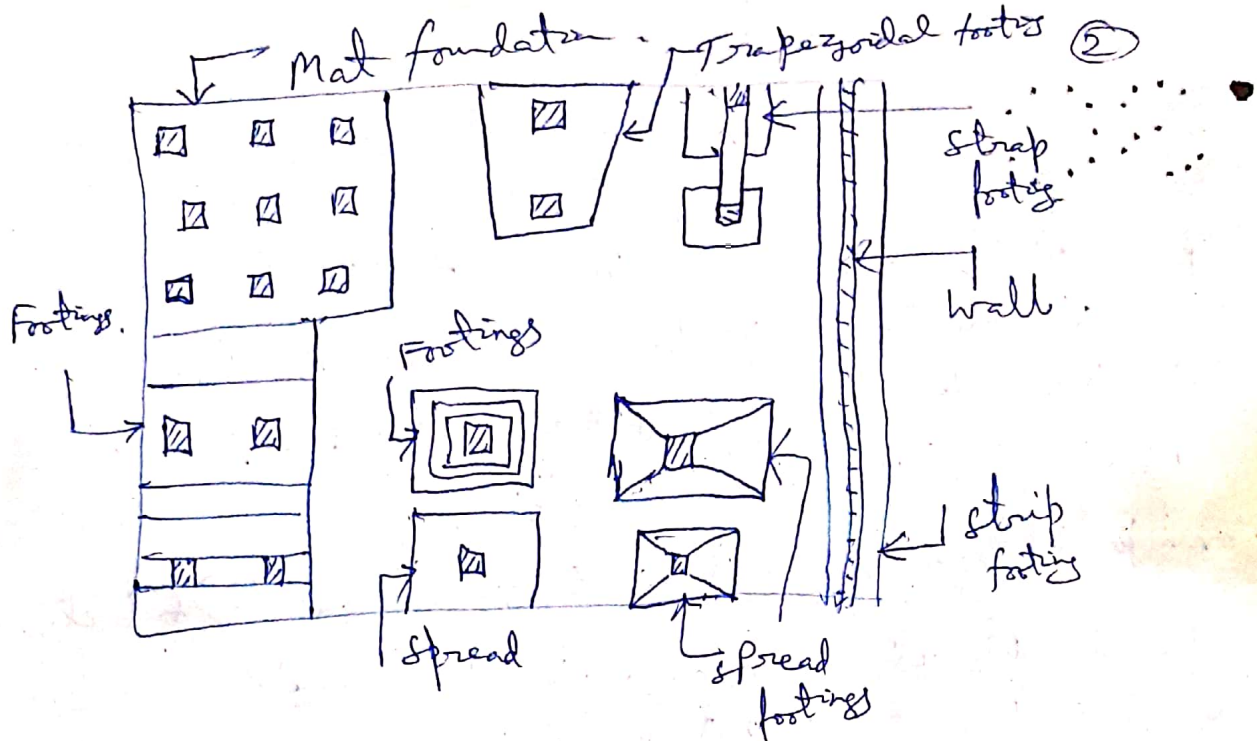 Mat foundation.
Trapezoidal footing
2
strap
footing
wall.
Footings.
Footings
strip
footing
spread
spread
footings